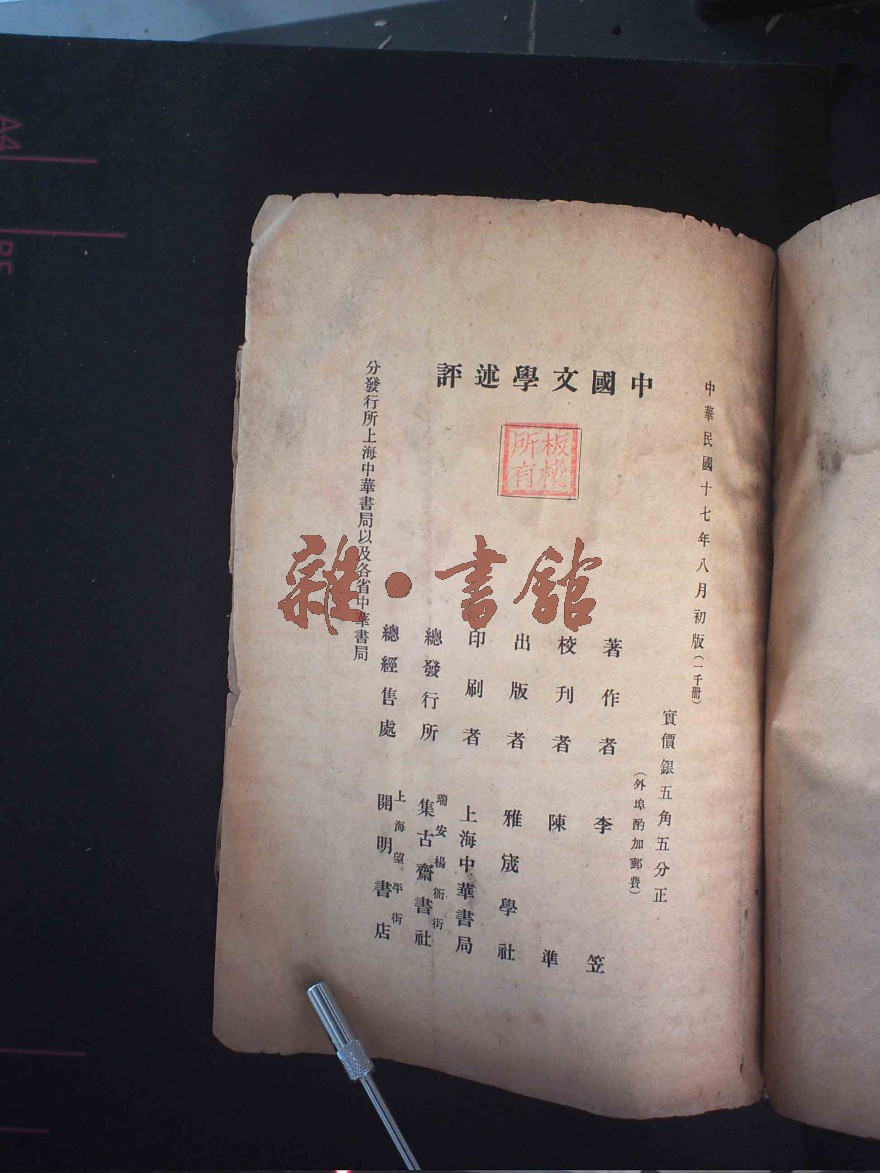 中華民國十七年八月初版(一千冊)
實價銀五角五分正
(外埠酌加郵費)
中國文學述評
板權所有
著作者 李笠
校刊者 陳準
出版者 雅宬學社
印刷者 上海中華書局
總發行所 瑞安楊衙街 集古齋書社
總經售處 上海望平街 開明書店
分發行所上海中華書局以及各省中華書局
雜·書館
A4